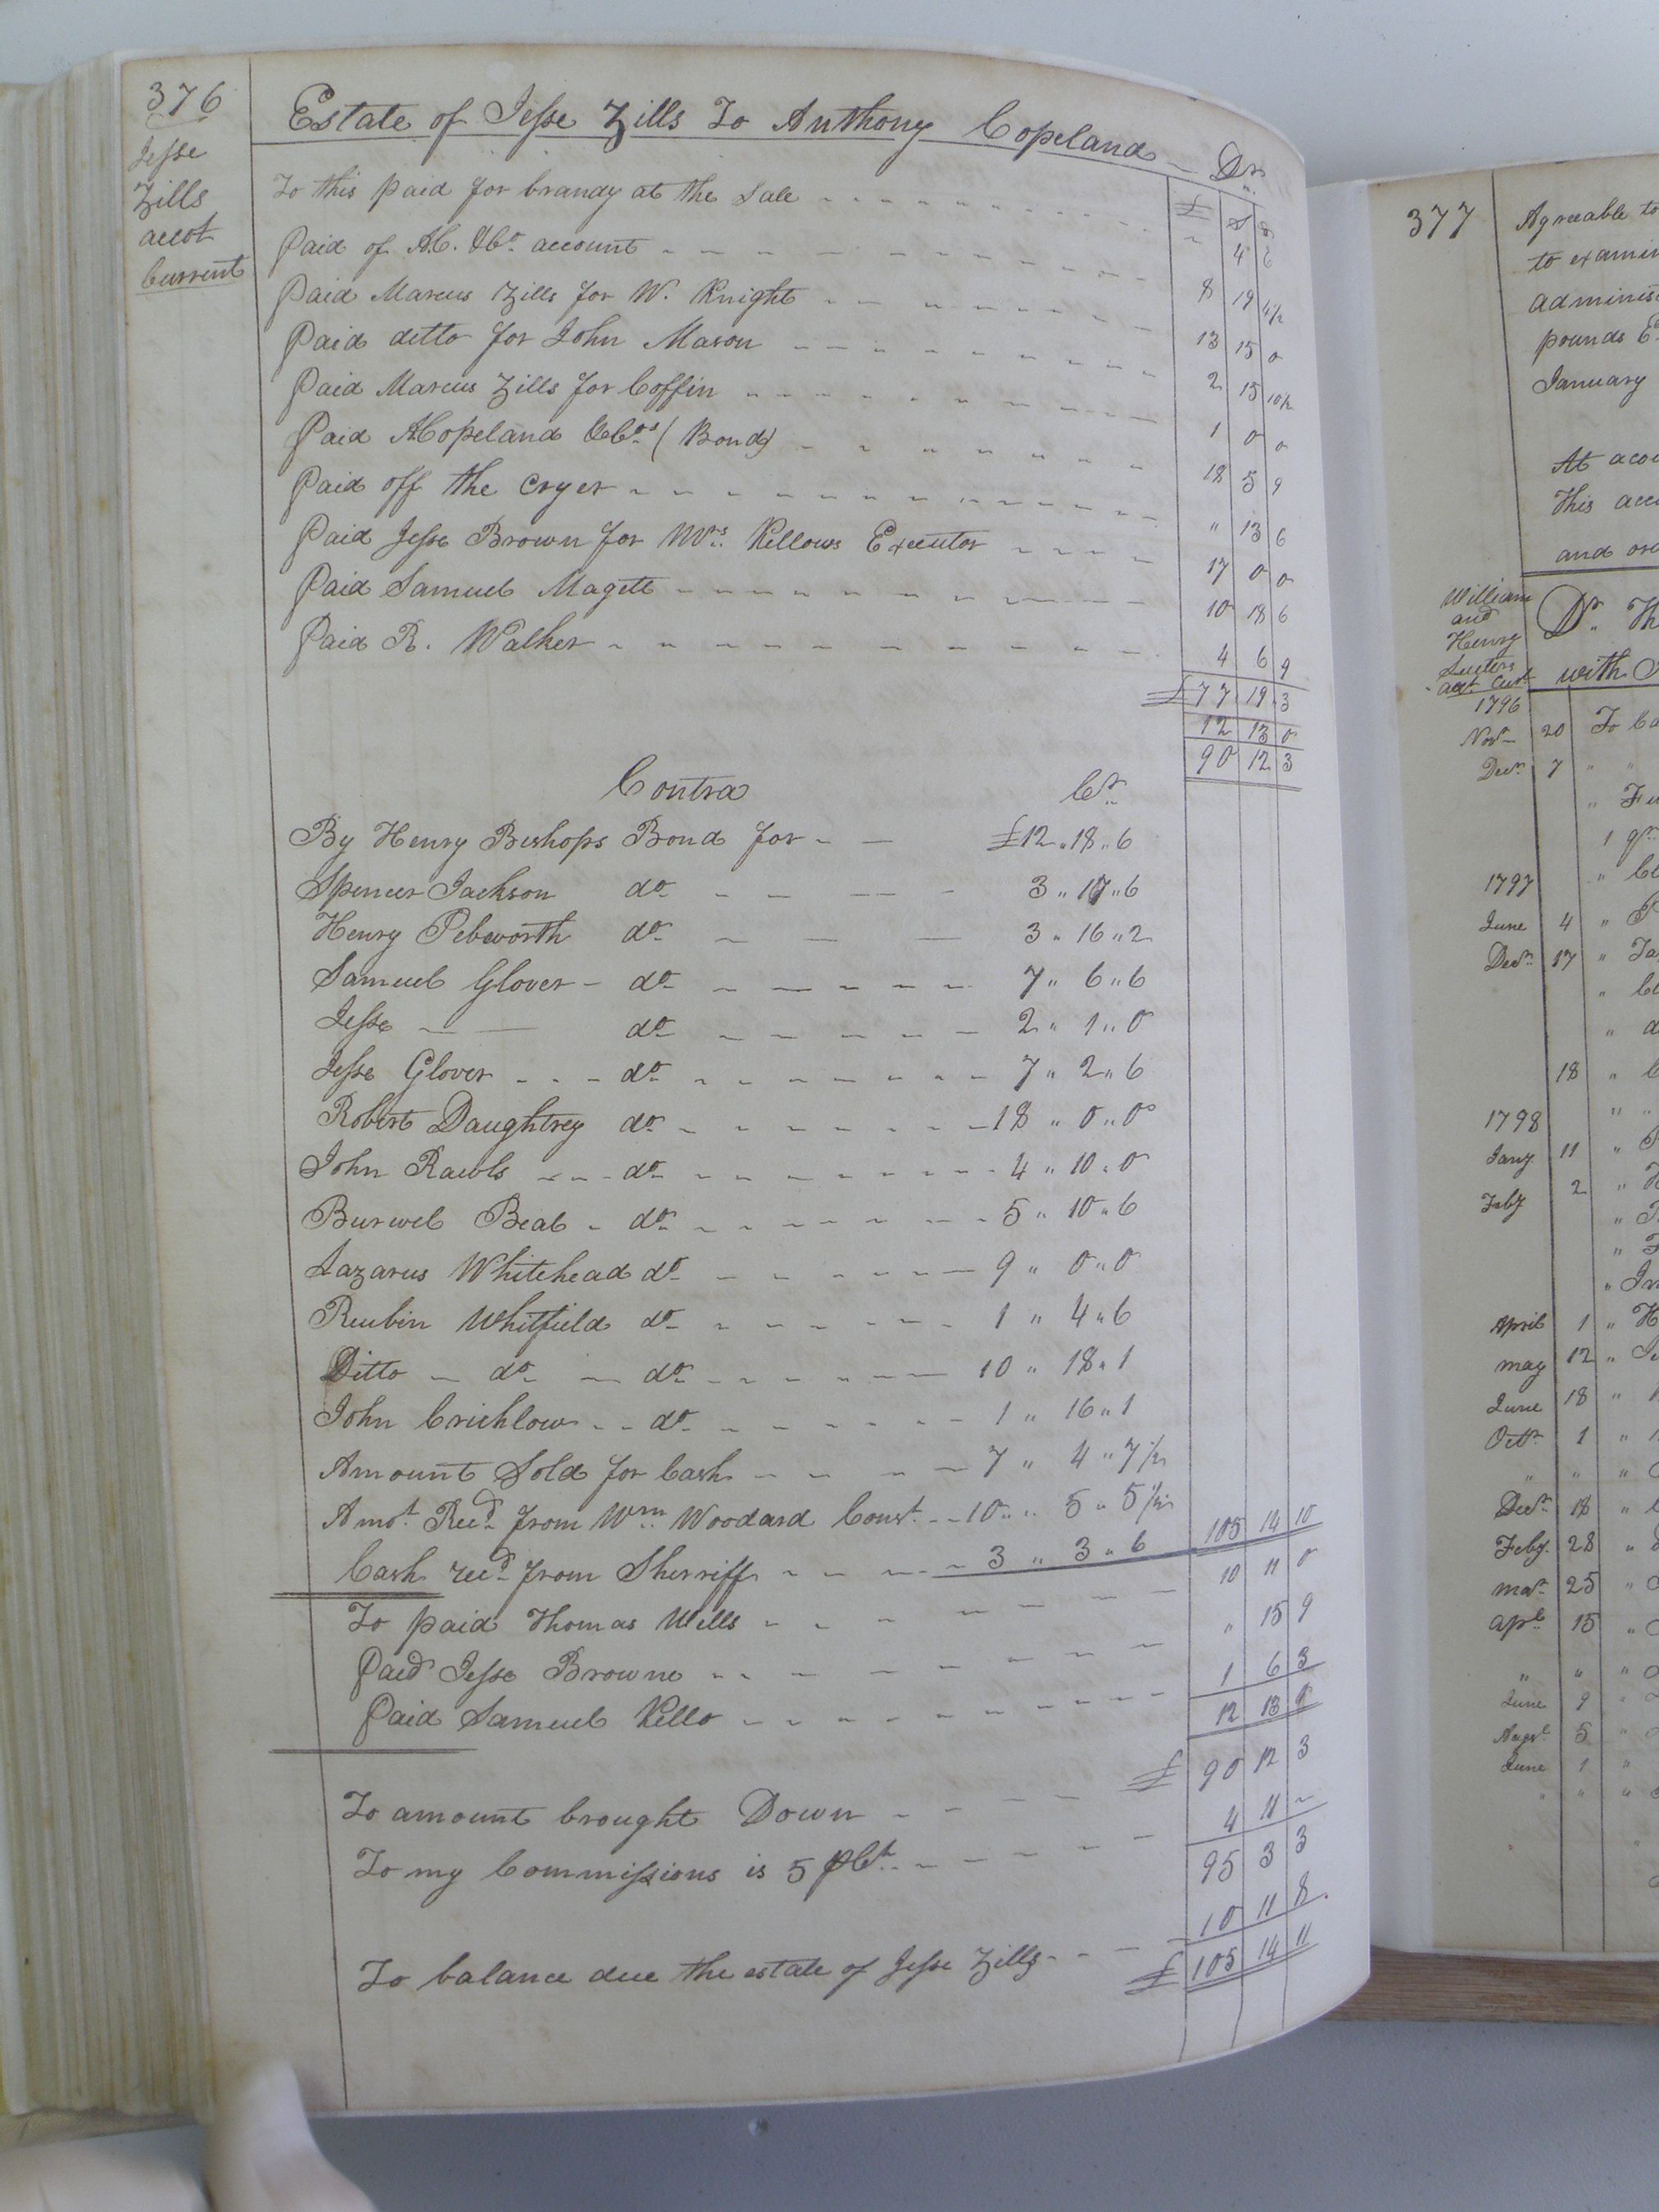 376
Jesse
Zills
accot
Current
Estate of Jesse Zills To Anthony Copeland Dr.
£ S D
To this paid for brandy at the Sale 4 6
Paid of AC. &Co. account 8 19 4½
Paid Marcus Zills for W. Knight 13 15 0
Paid ditto for John Mason 2 15 10½
Paid Marcus Zills for Coffin 1 0 0
Paid ACopeland &Cos (Bond) 18 5 9
Paid off the Cryer " 13 6
Paid Jesse Brown for Mrs. Kellows Executor 17 0 0
Paid Samuel Magett 10 18 6
Paid R. Walker 4 6 9
£77 19 3
12 13 0
90 12 3
Contra Cr.
By Henry Bishops Bond for £12 " 18 " 6
Spencer Jackson do 3 " 17 " 6
Henry Pebworth do 3 " 16 " 2
Samuel Glover do 7 " 6 " 6
Jesse do 2 " 1 " 0
Jesse Glover do 7 " 2 " 6
Robert Daughtrey do 18 " 0 " 0
John Rawls do 4 " 10 " 0
Burwel Beal do 5 " 10 " 6
Lazarus Whitehead do 9 " 0 " 0
Reubin Whitfield do 1 " 4 " 6
Ditto do do 10 " 18 " 1
John Crichlow do 1 " 16 " 1
Amount Sold for Cash 7 " 4 " 7½
Amot. Recd. from Wm. Woodard Const. 10 " 5 " 5½
Cash recd from Sherriff 3 " 3 " 6 105 14 10
To paid Thomas Wells 10 11 0
Paid Jesse Browne " 15 9
Paid Samuel Kello 1 6 3
12 13 0
To amount brought Down £ 90 12 3
To my Commissions is 5 pCt. 4 11
95 3 3
To balance due the estate of Jesse Zills 10 11 8
£105 14 11
377
Agreable to
to examin
adminis
pounds E
January
At a cou
This acc
and ord
William
and
Henry
acct Curt
Dr. Th
with
1796
Novr 20 To Ca
Decr 7 " "
" Fu
1 qr
1797 " Cl
June 4 " P
Decr. 17 " Ta
" Cl
" d
18 " C
1798 " "
Jany 11 "
Feby 2 " H
"
"
" In
April 1 " H
May 12 " Je
June 18 "
Octr. 1 "
" " "
Decr. 18 "
Feby. 28 "
Mar. 25 "
Apl 15 "
" " "
June 9 "
Augst. 5 "
June 1 "
" " "